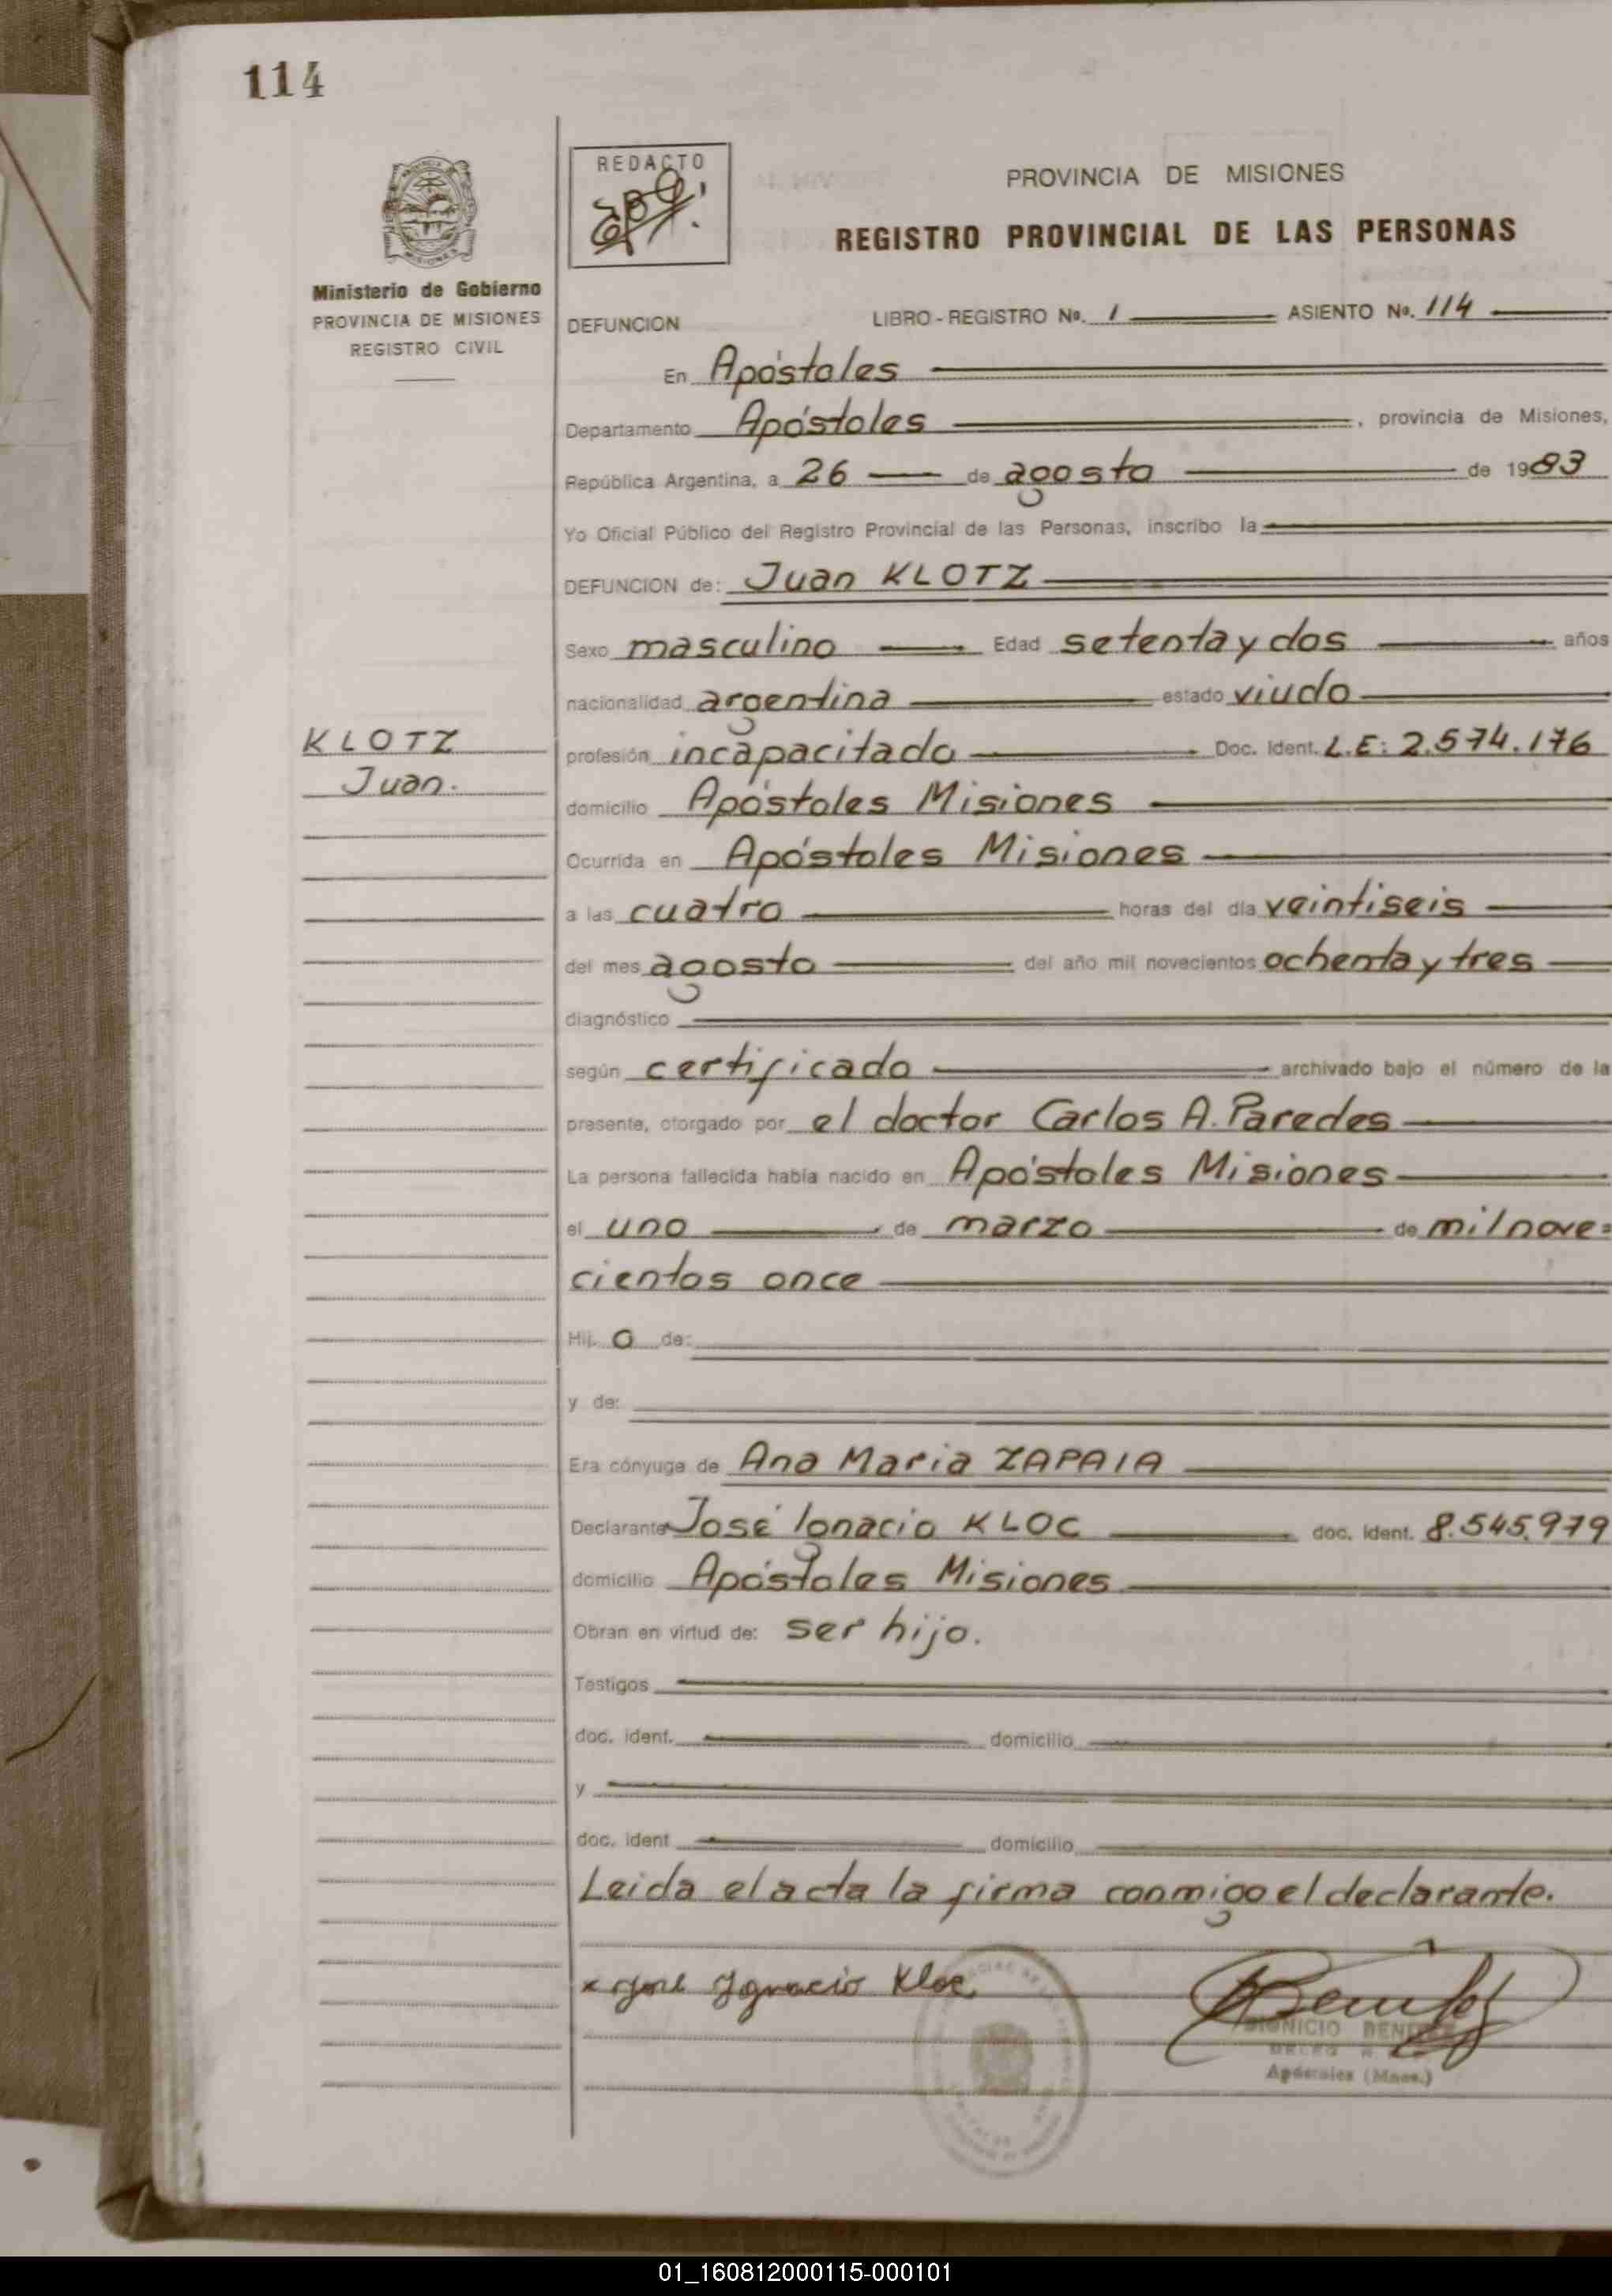 114
REDACTO
PROVINCIA DE MISIONES
REGISTRO PROVINCIAL DE LAS PERSONAS
Ministerio de Gobierno
PROVINCIA DE MISIONES
REGISTRO CIVIL
DEFUNCION LIBRO - REGISTRO No. 1 ASIENTO No. 114
En Apóstoles
Departamento Apóstoles, provincia de Misiones,
República Argentina, a 26 de agosto de 1983
Yo Oficial Público del Registro Provincial de las Personas, inscribo la
DEFUNCION de: Juan KLOTZ
Sexo masculino Edad setenta y dos años
nacionalidad argentina estado viudo
KLOTZ
Juan.
profesión incapacitado Doc. Ident. L.E: 2.574.176
domicilio Apóstoles Misiones
Ocurrida en Apóstoles Misiones
a las cuatro horas del día veintiseis
del mes agosto del año mil novecientos ochenta y tres
diagnóstico
según certificado archivado bajo el número de la
presente, otorgado por el doctor Carlos A. Paredes
La persona fallecida había nacido en Apóstoles Misiones
el uno de marzo de mil nove=
cientos once
Hij o de:
y de:
Era cónyuge de Ana Maria ZAPAIA
Declarante José Ignacio KLOC doc. ident. 8.545.979
domicilio Apóstoles Misiones
Obran en virtud de: ser hijo.
Testigos
doc. ident. domicilio
y
doc. ident domicilio
Leida el acta la firma conmigo el declarante.
x José Ignacio Kloc
Apóstoles (Mnes.)
01_160812000115-000101